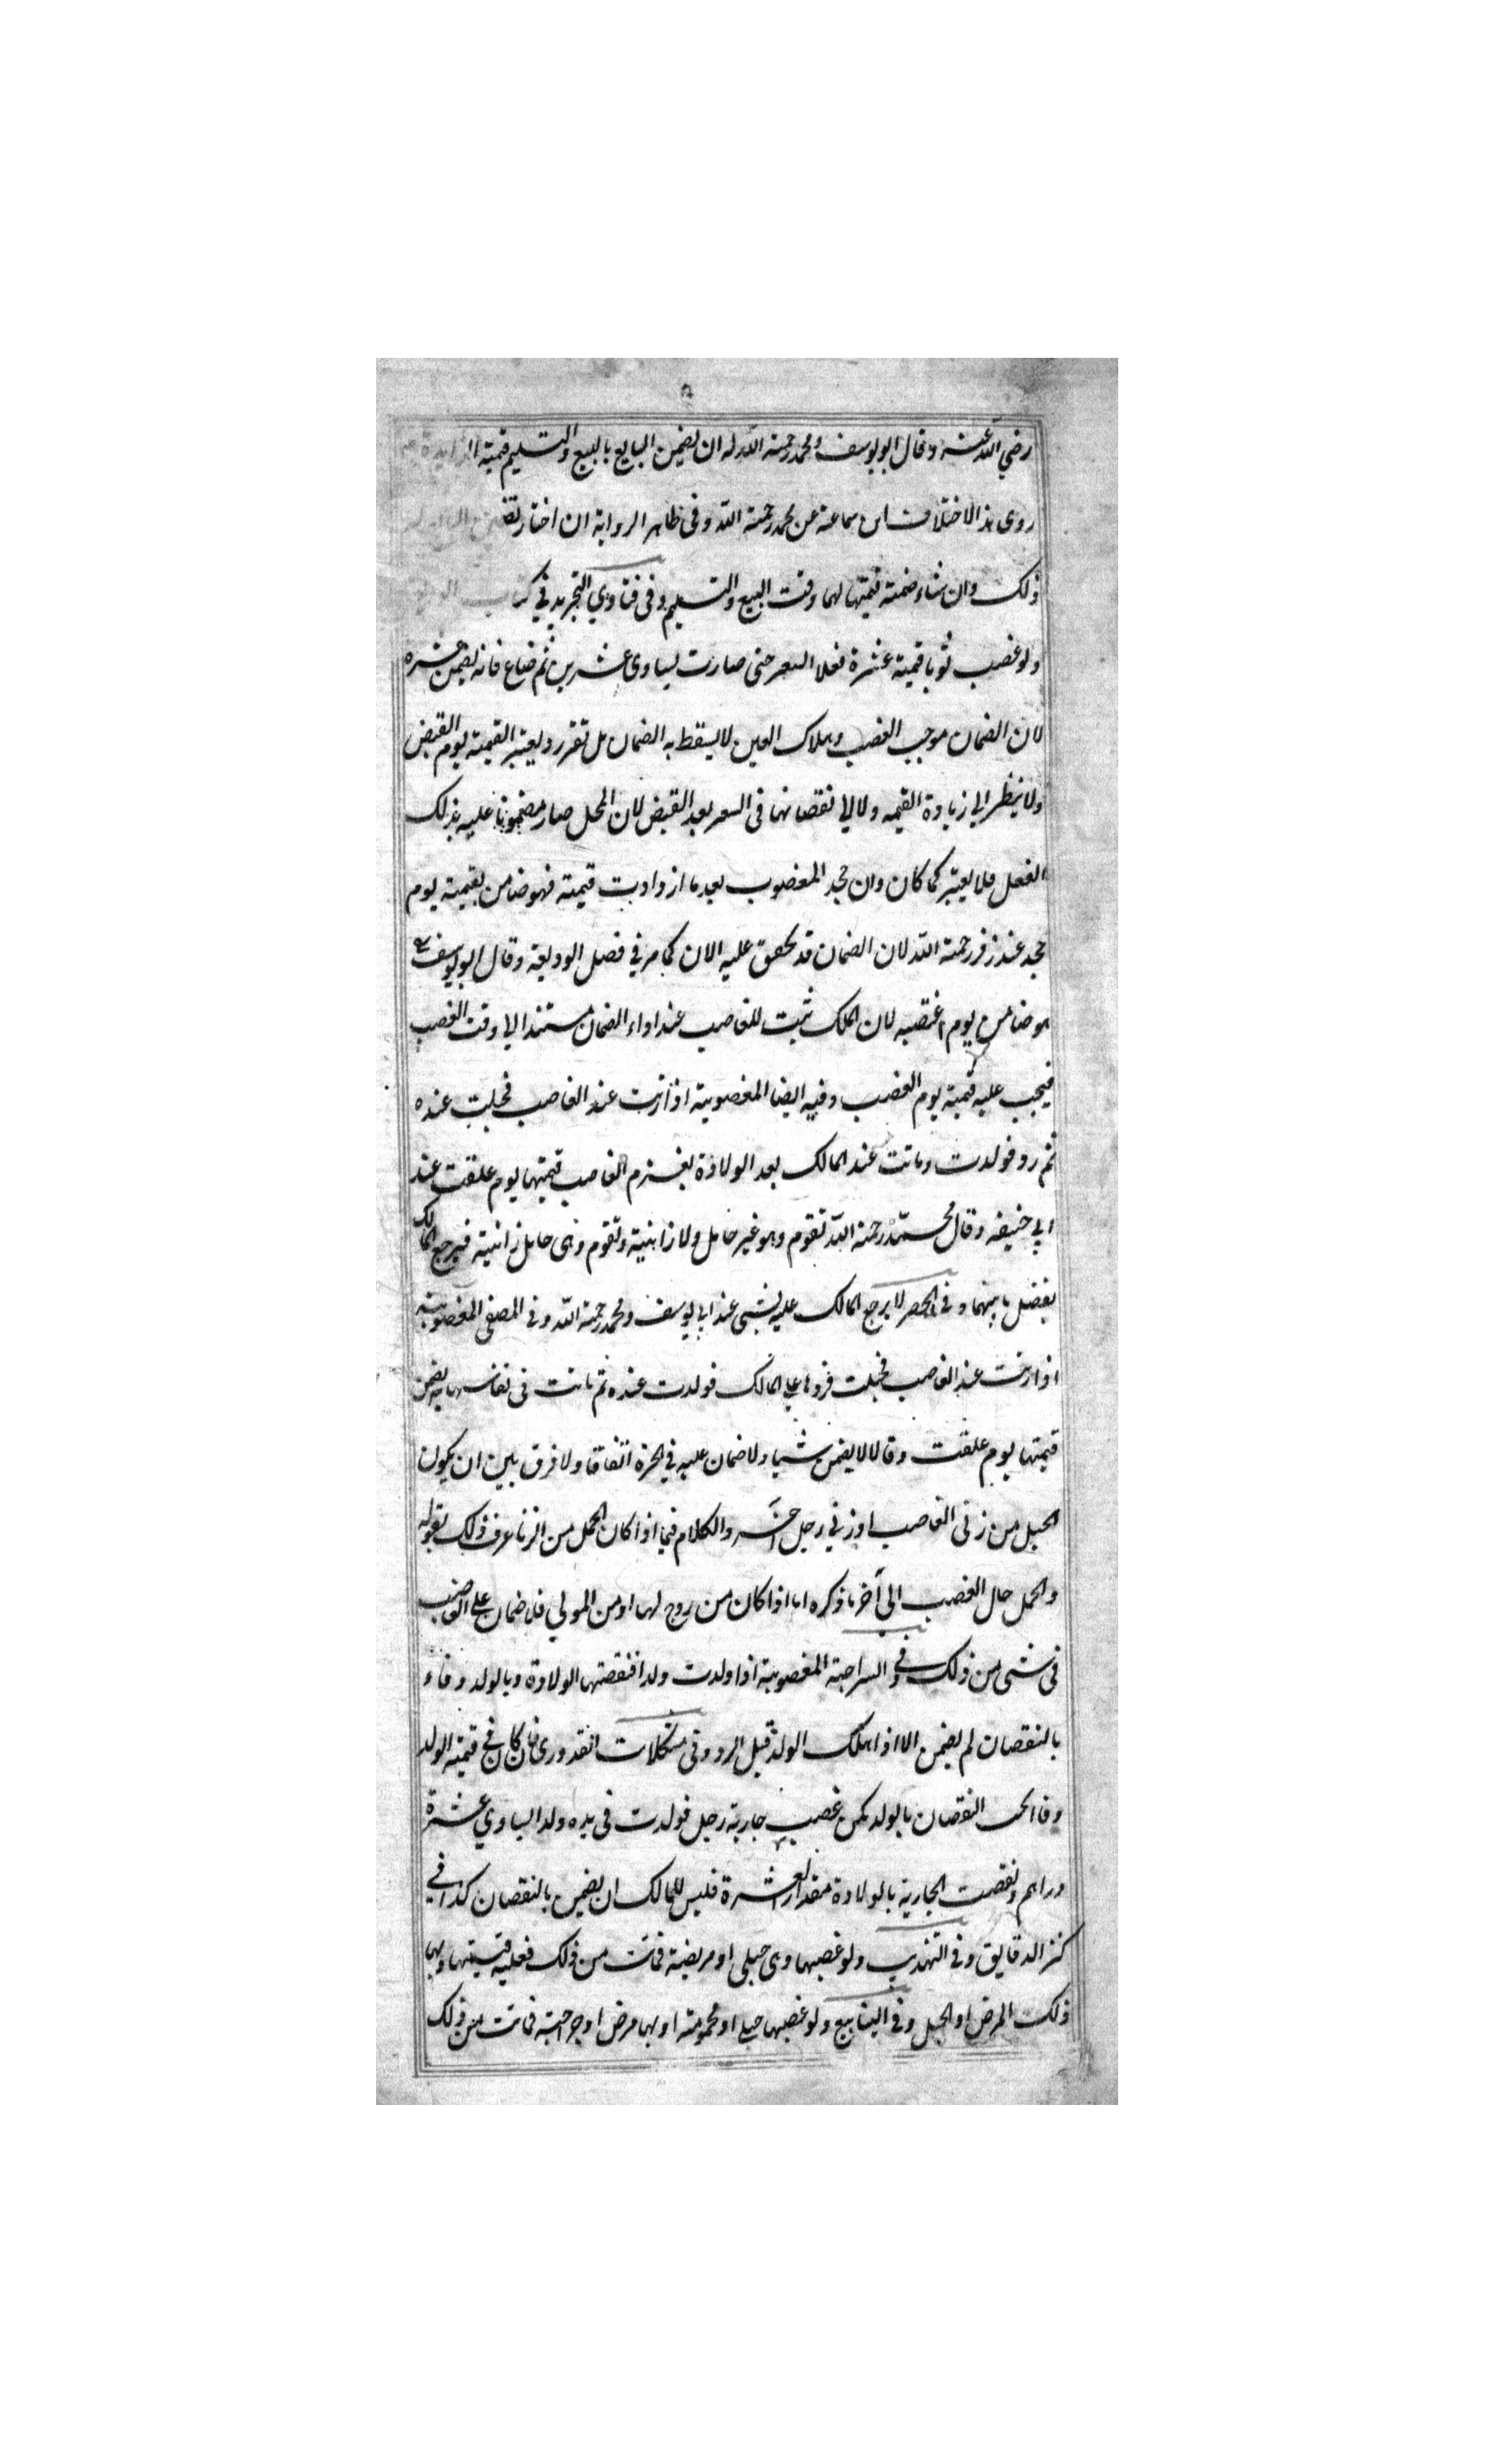 رضي الله عنه وقال ابو يوسف ومحمد رحمة الله له ان يضمن البايع بالبيع والتسليم قيمته
روى هذا الاختلاف ابن سماعة عن محمد رحمة الله وفى ظاهر الرواية ان اختار
ذلك وان شاء ضمنه قيمتها لهما وقت البيع والتسليم وفى فتاوي التجريد في كتاب
ولو غصب ثوبا قيمته عشرة فغلا السعر حتى صارت يساوى عشرين ثم ضاع فانه يضمن عشره
لان الضمان موجب الغصب وهلاك العين لا يسقط به الضمان بل تقرر ويعتبر القيمة يوم القبض
ولا ينظر الي زيادة القيمه ولا الي نقصانها فى السعر بعد القبض لان المحل صار مضمونا عليه بذلك
الفعل فلا يعتبر كما كان وان جحد المغصوب بعد ما ازدادت قيمته فهو ضامن بقيمته يوم
جحد عند زفر رحمة الله لان الضمان قد تحقق عليه الان كما مر في فصل الوديعة وقال ابو يوسف
هو ضامن يوم اغتصبه لان الملك ثبت للغاصب عند اداء الضمان مستندا الي وقت الغصب
فيجب عليه قيمته يوم الغصب وفيه ايضا المغصوبة اذا زنت عند الغاصب فحبلت عنده
ثم رد فولدت وماتت عند المالك بعد الولادة يغرم الغاصب قيمتها يوم علقت عند
ابي حنيفه وقال محمد رحمة الله تقوم وهو غير حامل ولا زانية وتقوم وهى حامل زانية فيرجع المالك
بفضل ما بينهما وفى الحصر لا يرجع المالك عليه بشى عند ابي يوسف ومحمد رحمة الله وفى المصفى المغصوبة
اذا زنت عند الغاصب فحبلت فردها على المالك فولدت عنده ثم ماتت فى نفاسها يضمن
قيمتها يوم علقت وقالا لا يضمن شيا ولا ضمان عليه في الحرة اتفاقا ولا فرق بين ان يكون
الحبل من زنى الغاصب او زني رجل آخر والكلام فيما اذا كان الحمل من الزنا عرف ذلك بقوله
والحمل حال الغصب الى آخر ما ذكره اما اذا كان من زوج لها او من المولي فلا ضمان على الغاصب
فى شى من ذلك وفي السراجية المغصوبة اذا ولدت ولدا فنقصتها الولادة وبالولد وفاء
بالنقصان لم يضمن الا اذا هلك الولد قبل الرد وفى مشكلات القدورى فان كان في قيمة الولد
وفا النقصان بالولد كمن غصب جارية رجل فولدت فى يده ولدا يساوي عشرة
دراهم ونقصت الجارية بالولادة مقدار العشرة فليس للمالك ان يضمن بالنقصان كذا في
كنز الدقايق وفى التهذيب ولو غصبها وهى حبلى او مريضة فماتت من ذلك فعليه قيمتها وبها
ذلك المرض او الحبل وفى الينابيع ولو غصبها حبلى او محمومة او بها مرض او جراحة فماتت من ذلك